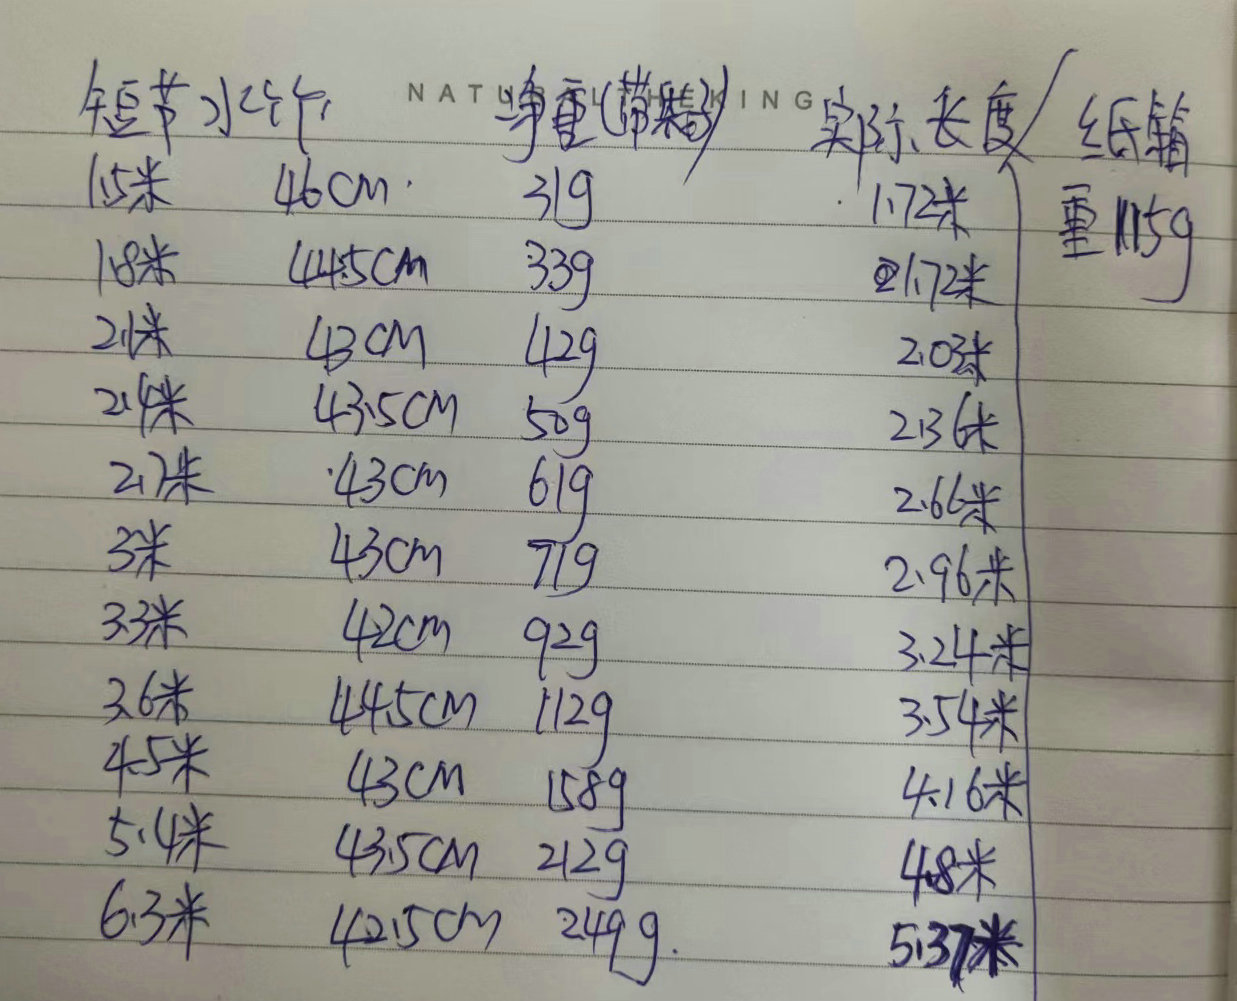 NATURALTHEKING
短节水竹竿 净重(带装) 实际长度/纸箱
1.5米 46CM 31g 1.72米 重115g
1.8米 44.5CM 33g 1.72米
2.1米 43CM 42g 2.03米
2.4米 43.5CM 50g 2.36米
2.7米 43CM 61g 2.66米
3米 43CM 71g 2.96米
3.3米 42CM 92g 3.24米
3.6米 44.5CM 112g 3.54米
4.5米 43CM 158g 4.16米
5.4米 43.5CM 212g 4.8米
6.3米 42.5CM 249g. 5.37米